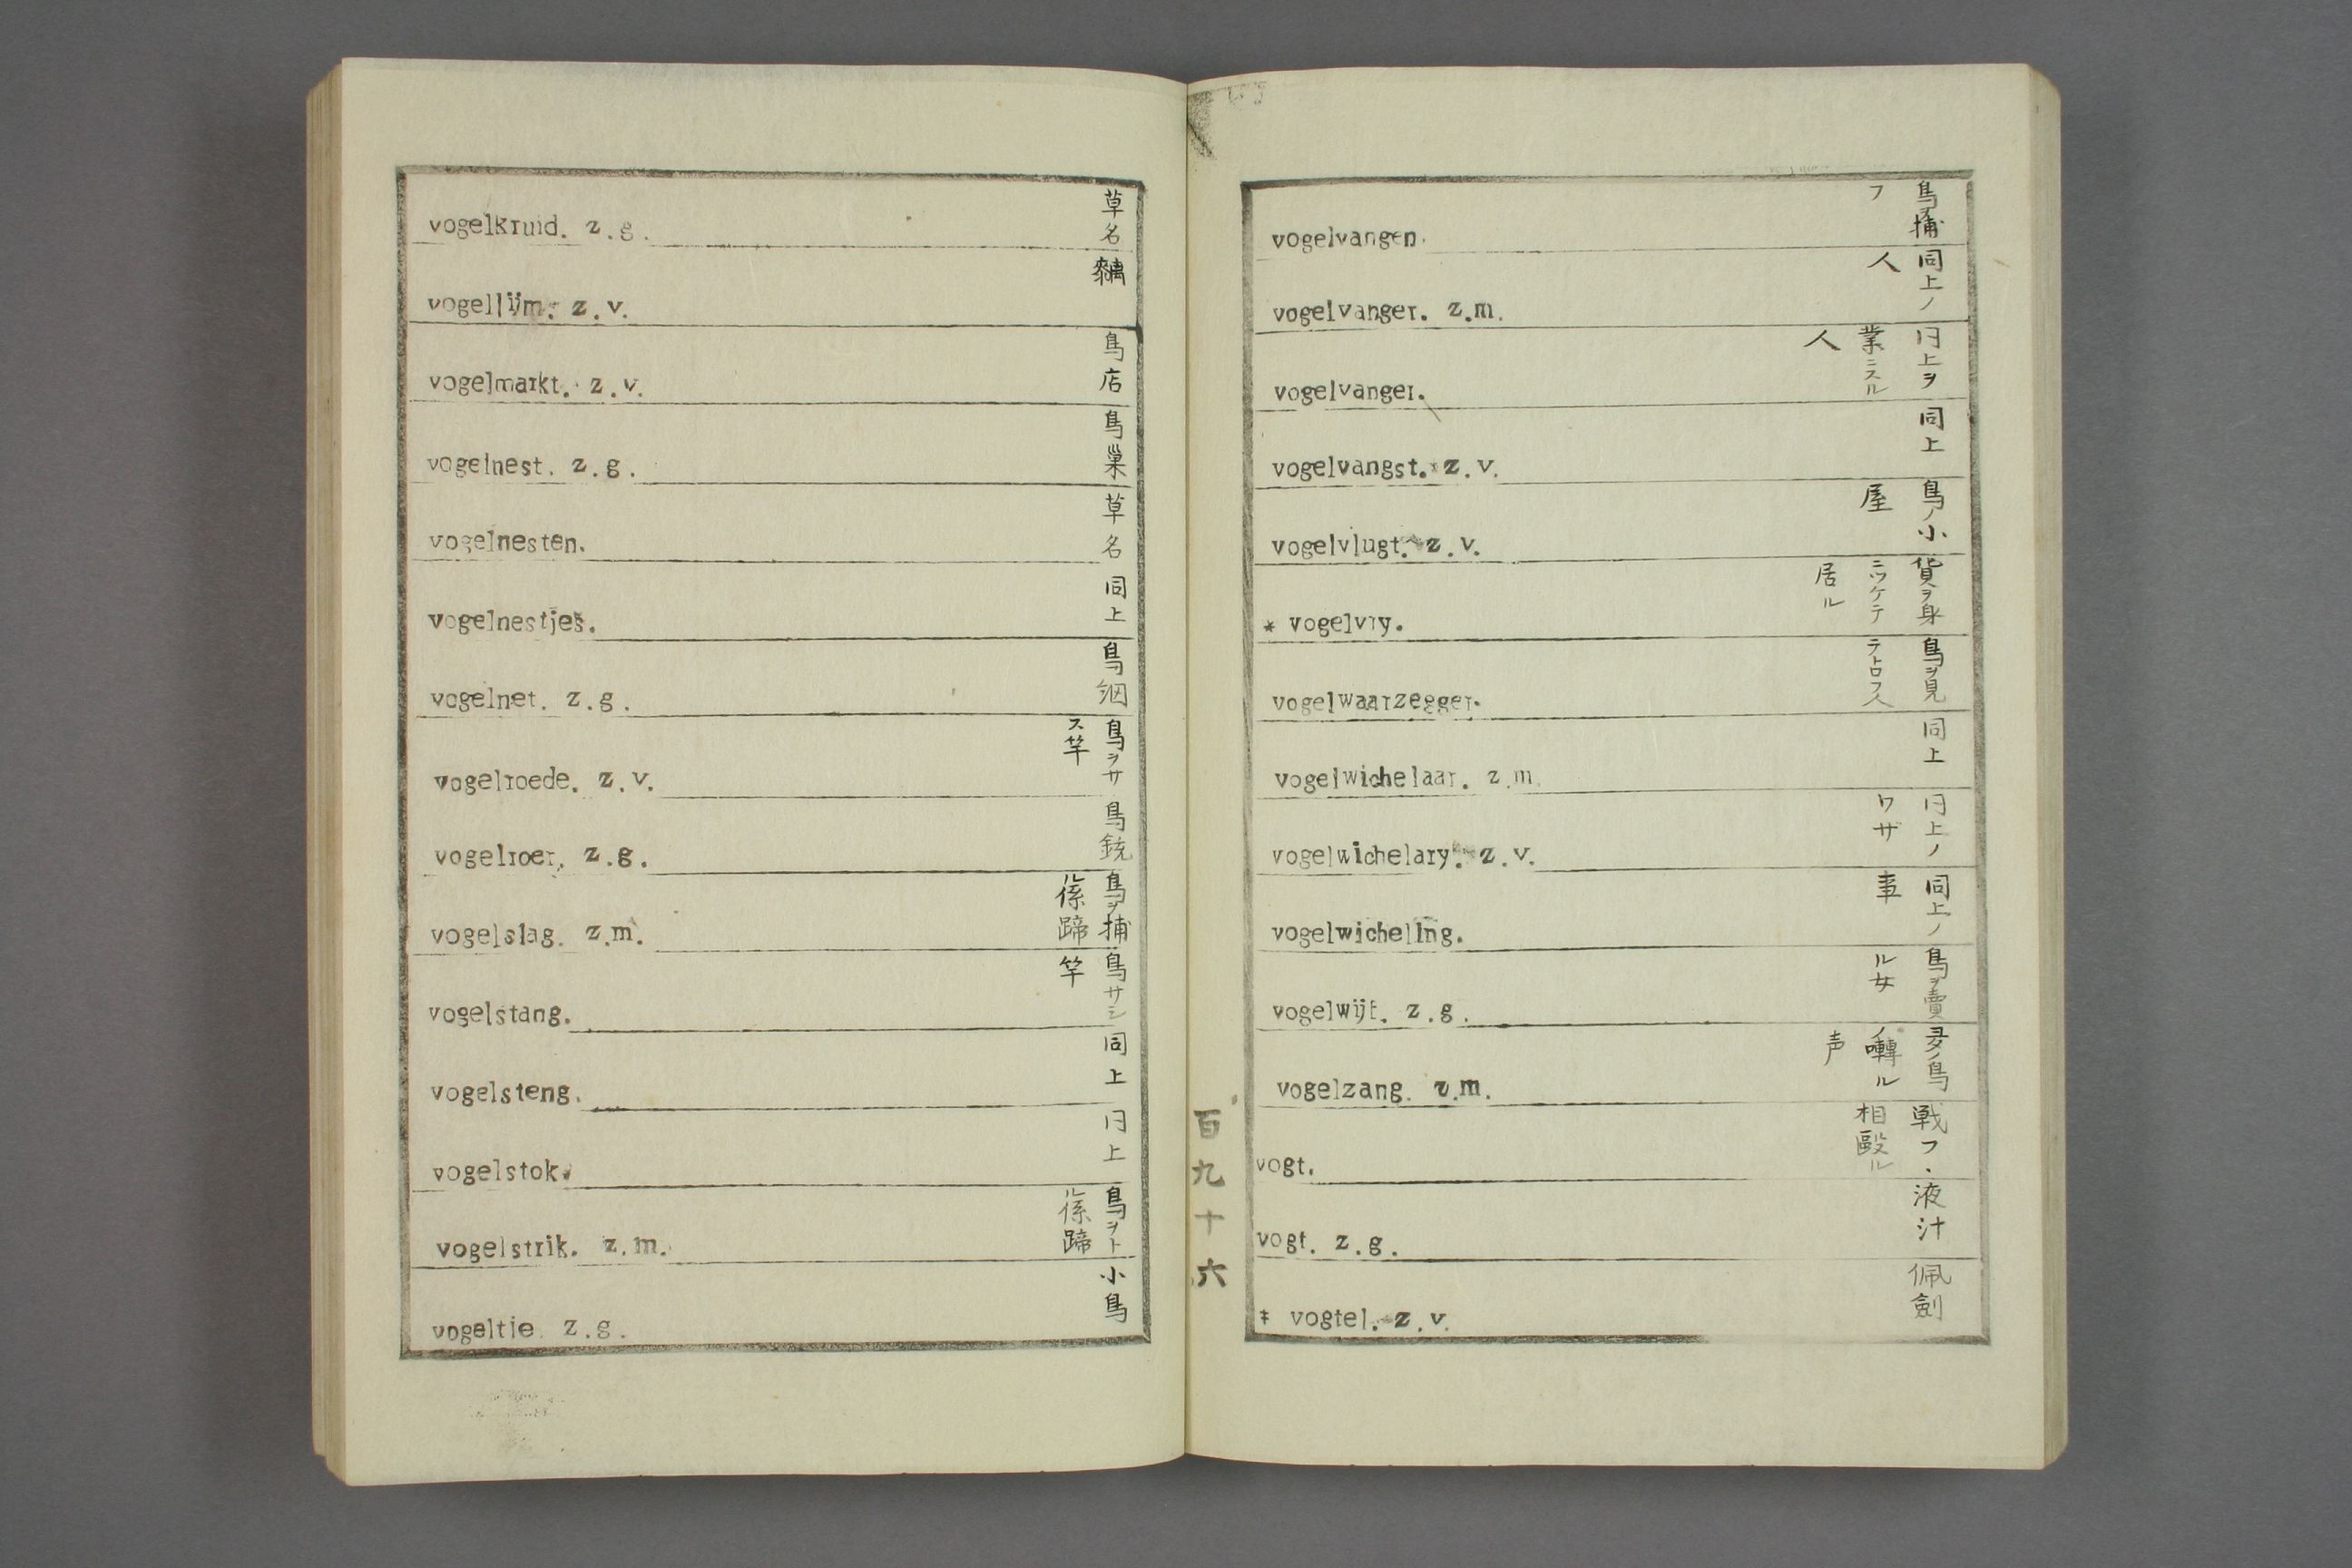 vogelkruid. z.g. 草名
vogellijm. z.v. 黐
vogelmarkt. z.v. 鳥店
vogelnest. z.g. 鳥巢
vogelnesten. 草名
vogelnestjes. 同上
vogelnet. z.g. 鳥網
vogelroede. z.v. 鳥ヲサス竿
vogelroer. z.g. 鳥銃
vogelslag. z.m. 鳥ヲ捕ル係蹄
vogelstang. 鳥サシ竿
vogelsteng. 同上
vogelstok. 仝上
vogelstrik. z.m. 鳥ヲトル係蹄
vogeltie. z.g. 小鳥
百九十六
vogelvangen. 鳥捕フ
vogelvanger. z.m. 同上ノ人
vogelvanger. 同上ヲ業ニスル人
vogelvangst. z.v. 同上
vogelvlugt. z.v. 鳥ノ小屋
* vogelvry. 貨ヲ身ニツケテ居ル
vogelwaarzegger. 鳥ヲ見テトロフ人
vogelwichelaar. z.m. 同上
vogelwichelary. z.v. 同上ノワザ
vogelwicheling. 同上ノ事
vogelwijf. z.g. 鳥ヲ賣ル女
vogelzang. z.m. ノ鳥ノ囀ル声
vogt. 戦フ.相毆ル
vogt. z.g. 液汁
‡ vogtel. z.v. 佩劍